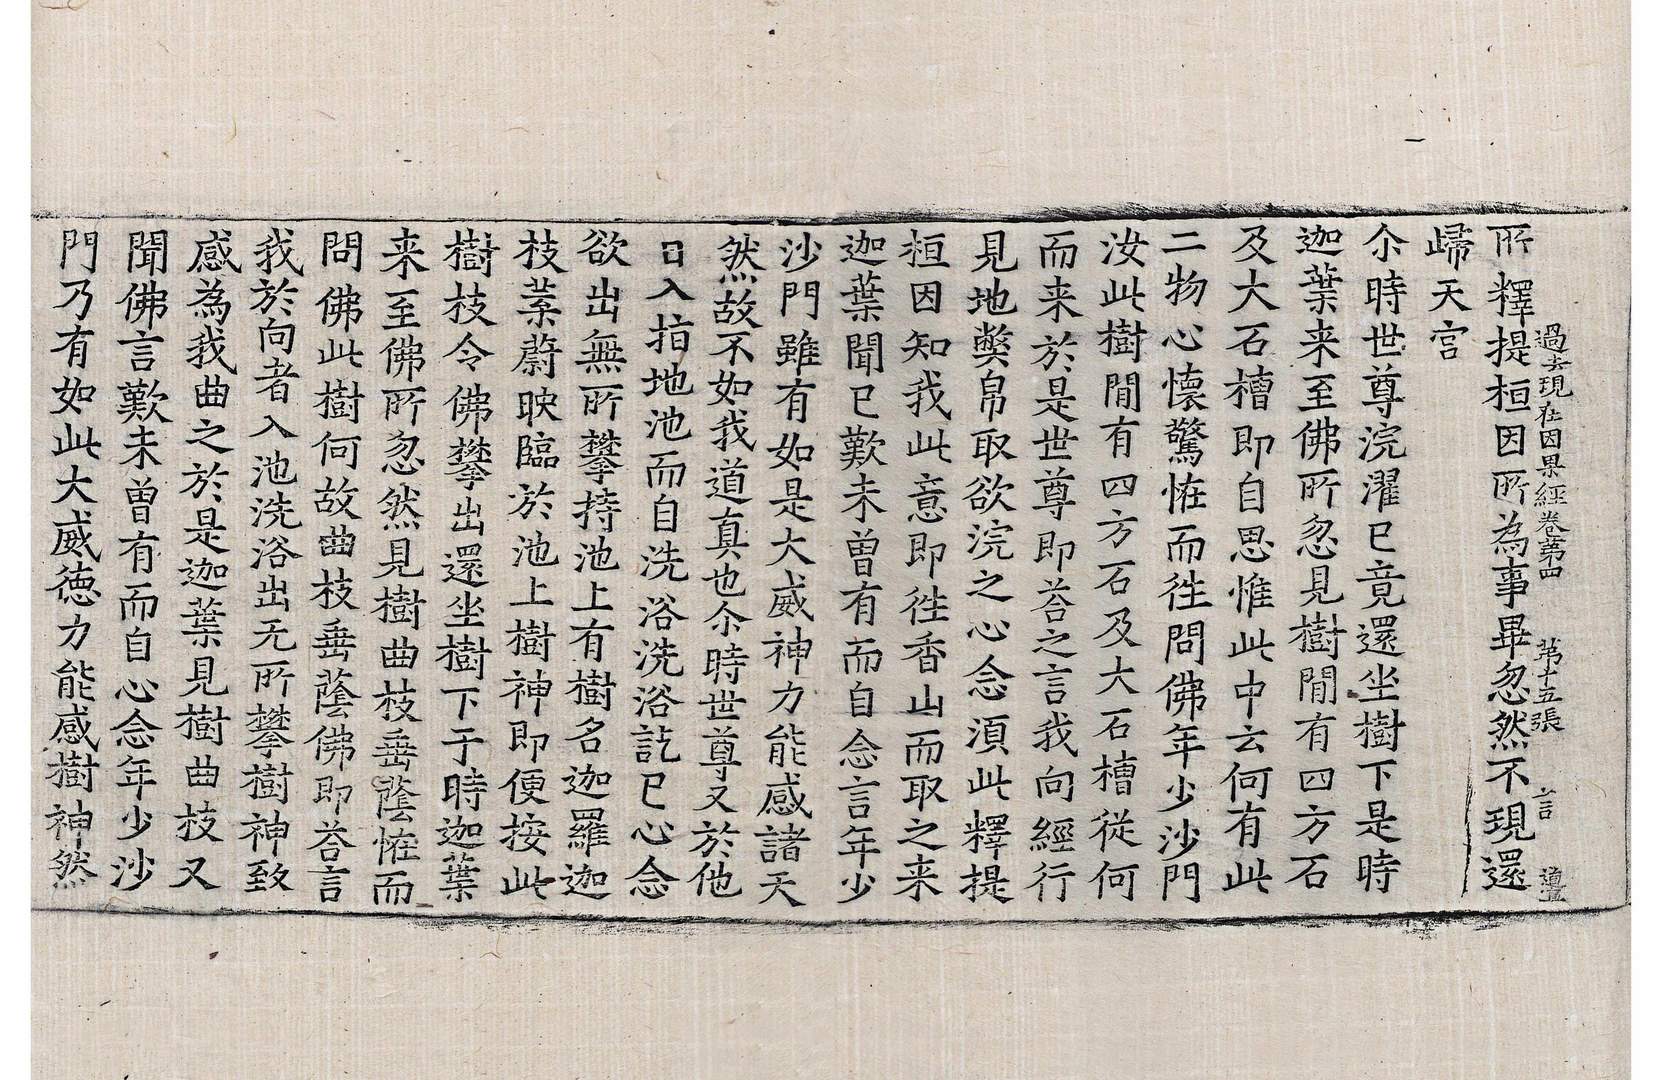 過去現在因果經卷第四 第十五張 言
所釋提桓因所為事畢忽然不現還
歸天宮
尒時世尊浣濯已竟還坐樹下是時
迦葉来至佛所忽見樹閒有四方石
及大石槽即自思惟此中云何有此
二物心懷驚恠而徃問佛年少沙門
汝此樹閒有四方石及大石槽従何
而来於是世尊即荅之言我向經行
見地弊帛取欲浣之心念湏此釋提
桓因知我此意即徃香山而取之来
迦葉聞已歎未曾有而自念言年少
沙門雖有如是大威神力能感諸天
然故不如我道真也尒時世尊又於他
日入指地池而自洗浴洗浴訖已心念
欲出無所攀持池上有樹名迦羅迦
枝葉蔚映臨於池上樹神即便按此
樹枝令佛攀出還坐樹下于時迦葉
来至佛所忽然見樹曲枝垂蔭恠而
問佛此樹何故曲枝垂蔭佛即荅言
我於向者入池洗浴出无所攀樹神致
感為我曲之於是迦葉見樹曲枝又
聞佛言歎未曾有而自心念年少沙
門乃有如此大威徳力能感樹神然